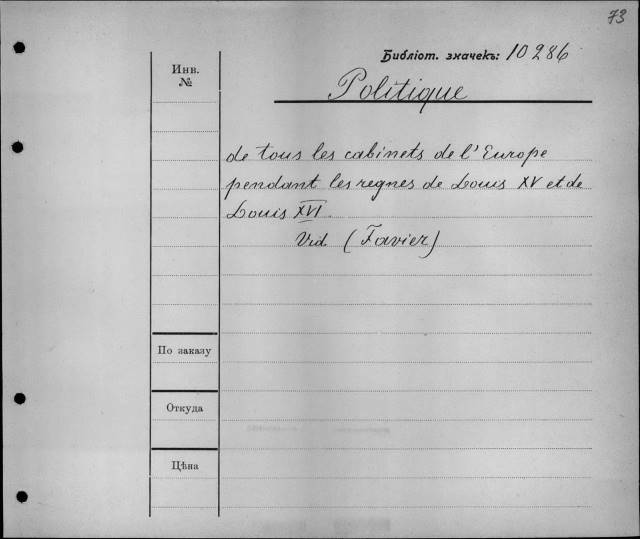 73
Библіот. значекъ: 10286
Инв.
№
Politique
de tous les cabinets de l'Europe
pendant les regnes de Louis XV et de
Louis XVI.
Vid. (Favier)
По заказу
Откуда
Цѣна